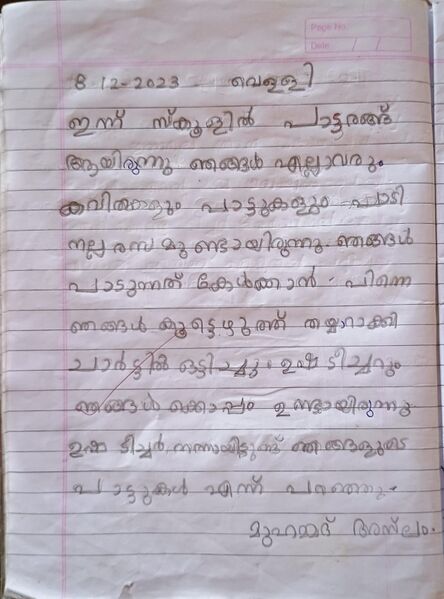 Page No.
Date / /
8-12-2023 വെള്ളി
ഇന്ന് സ്കൂളിൽ പാട്ടരങ്ങ്
ആയിരുന്നു ഞങ്ങൾ എല്ലാവരും
കവിതകളും പാട്ടുകളും പാടി
നല്ല രസമുണ്ടായിരുന്നു. ഞങ്ങൾ
പാടുന്നത് കേൾക്കാൻ. പിന്നെ
ഞങ്ങൾ കൂട്ടെഴുത്ത് തയ്യാറാക്കി
ചാർട്ടിൽ ഒട്ടിച്ചു. ഉഷ ടീച്ചറും
ഞങ്ങൾക്കൊപ്പം ഉണ്ടായിരുന്നു
ഉഷ ടീച്ചർ നന്നായിട്ടുണ്ട് ഞങ്ങളുടെ
പാട്ടുകൾ എന്ന് പറഞ്ഞു.
മുഹമ്മദ് അസ്ലം.